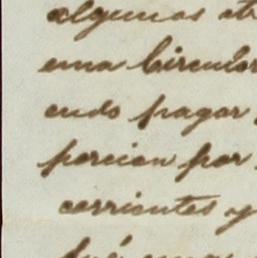 algunas otr
una Circular
endo pagar
porcion por
corrientes y